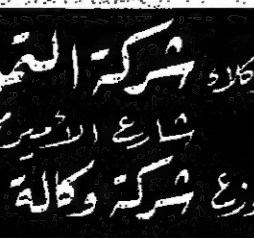 وكلاء شركة التمو
شارع الأمير
وزع شركة وكالة